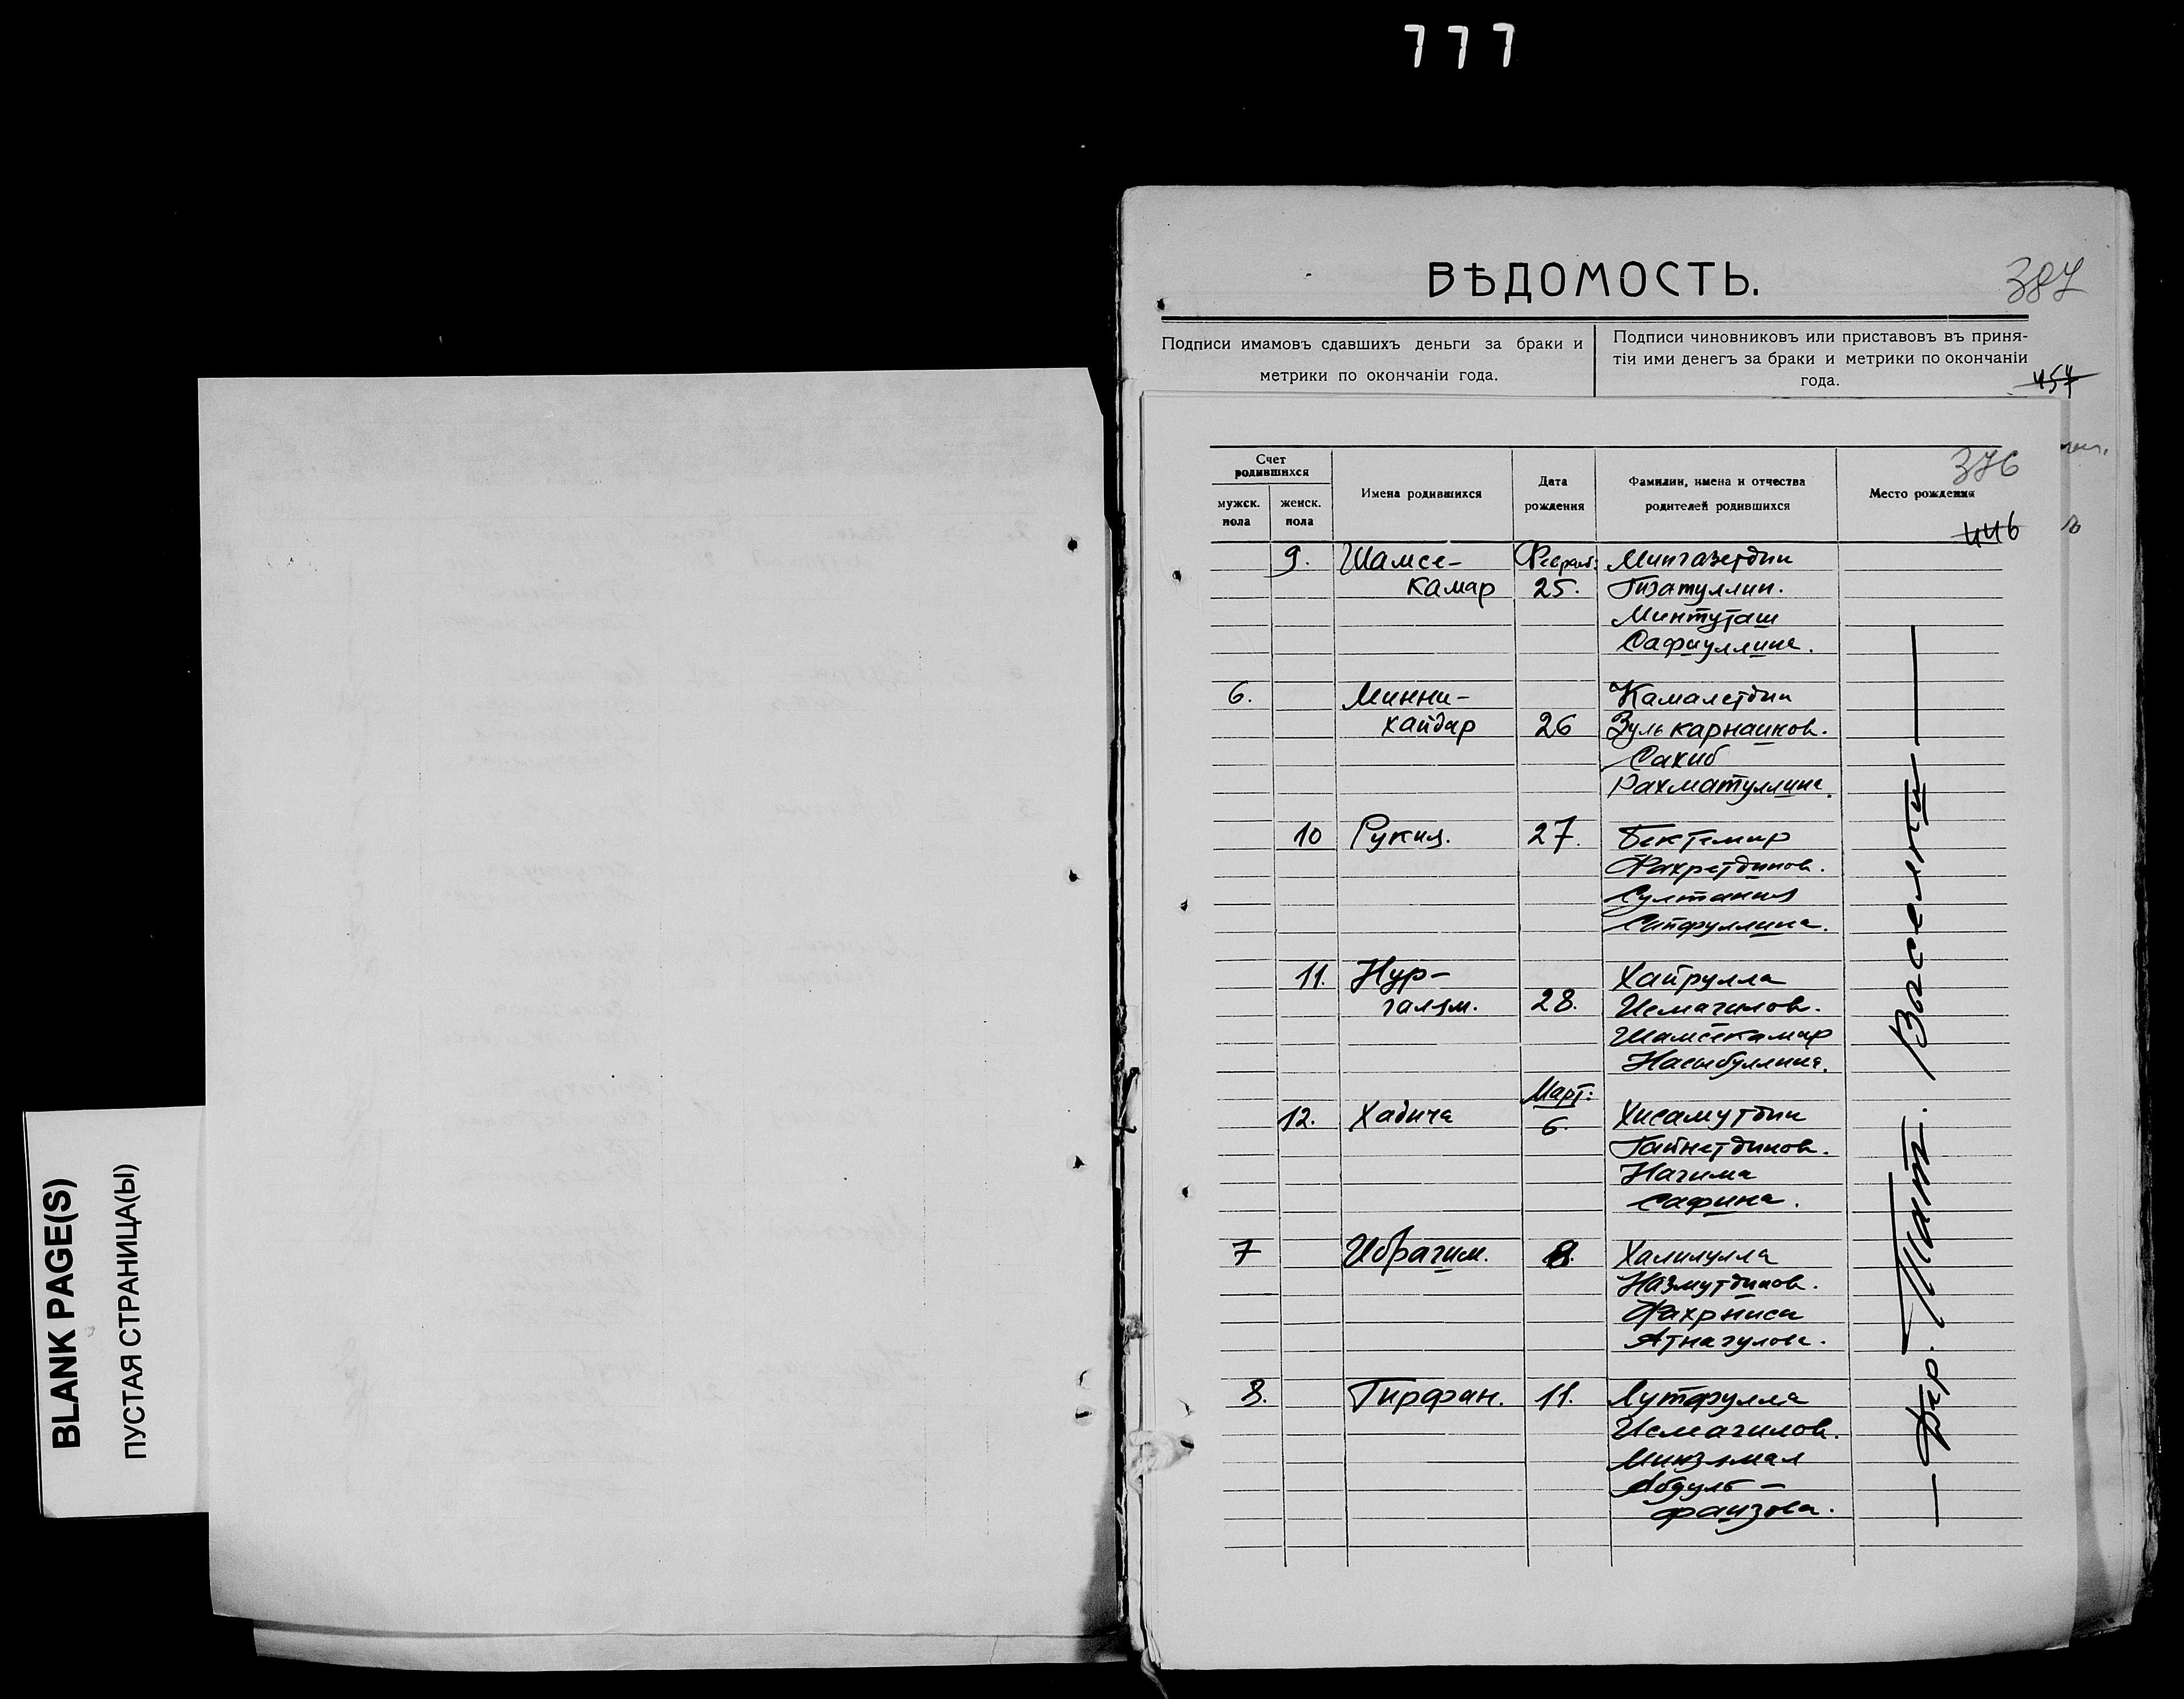 777
BLANK PAGE(S)
ПУСТАЯ СТРАНИЦА(Ы)
ВѢДОМОСТЬ.
387
Подписи имамовъ сдавшихъ деньги за браки и
метрики по окончаніи года.
Подписи чиновниковъ или приставовъ въ приня-
тіи ими денегъ за браки и метрики по окончаніи
года.
457
376
446
Счет
родившихся
мужск.
пола
женск.
пола
Имена родившихся
Дата
рождения
Фамилии, имена и отчества
родителей родившихся
Место рождения
9. Шамсе- Феврал: Мингазетдин
камар 25. Гизатуллин.
Минтуташ
Сафиуллина.
6. Минни- Камалетдин
хайдар 26 Зулькарнаинов.
Сахиб
Рахматуллина.
10 Рукия. 27. Бектемир
Фахретдинов.
Султания
Сайфуллина.
11. Нур- Хайрулла
галям. 28. Исмагилов.
Шамсекамар
Насыбуллина.
Март:
12. Хадича 6. Хисамутдин
Гайнетдинов.
Нагима
Сафина.
7 Ибрагим. 8. Халилулла
Назмутдинов.
Фахрниса
Атнагулова.
8. Гирфан. 11. Лутфулла
Исмагилов.
Минзямал
Абдуль-
фаизова.
— Дер. Тат. Выселки —